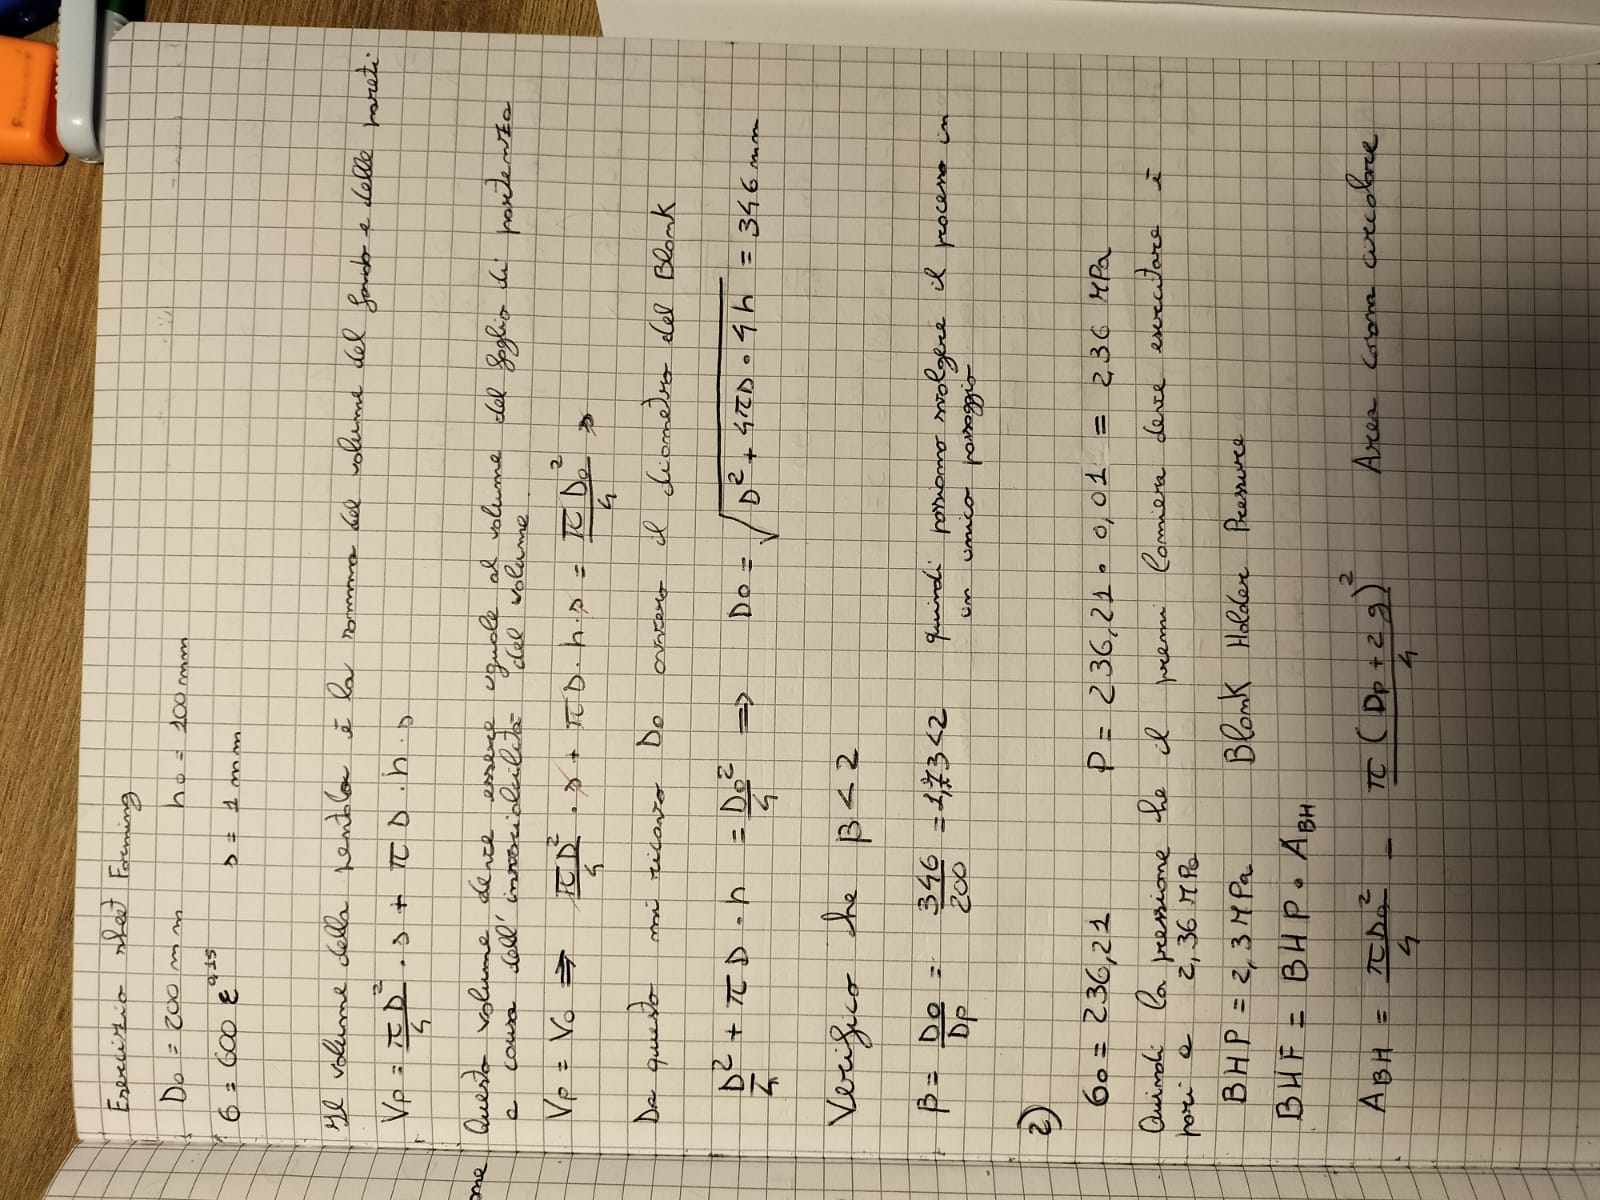 Esercizio sheet Forming
D₀ = 200 mm h₀ = 100 mm
σ = 600 ε^0,15 s = 1 mm
Il volume della pentola è la somma del volume del fondo e delle pareti
Vp = πD²/4 · s + πD · h · s
me
Questo volume deve essere uguale al volume del foglio di partenza
a causa dell' del volume.
Vp = V₀ ⇒ πD²/4 · s + πD · h · s = πD₀²/4 s
Da questo mi ricavo D₀ ovvero il diametro del Blank
D²/4 + πD · h = D₀²/4 ⇒ D₀ = √(D² + 4πD · 4h) = 346 mm
Verifico che β < 2
β = D₀/Dp = 346/200 = 1,73 < 2 quindi possiamo svolgere il processo in
un unico passaggio
2)
σ₀ = 236,21 P = 236,21 · 0,01 = 236 MPa
Quindi la pressione che il premi lamiera deve esercitare è
pari a 2,36 MPa
BHP = 2,3 MPa Blank Holder Pressure
BHF = BHP · A_BH
A_BH = πD₀²/4 − π(Dp + 2g)²/4 Area corona circolare